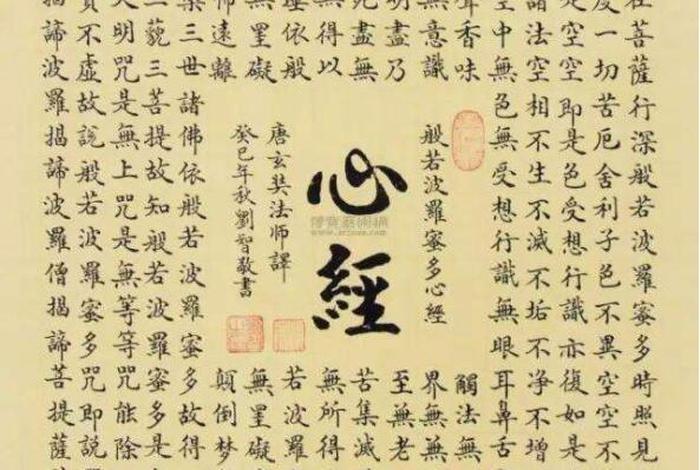 在菩薩行深般若波羅蜜多時照見
度一切苦厄舍利子色不異空空不
是空空即是色受想行識亦復如是
諸法空相不生不滅不垢不净不增
空中無色無受想行識無眼耳鼻舌
聲香味
無意識
明盡乃
死盡無
無得以
埵依般
無罣礙
怖遠離
般若波羅蜜多心經
心經
唐玄奘法師譯
癸巳年秋劉智敬書
觸法無
界無無
至無老
苦集滅
無所得
若波羅
無罣礙
顛倒夢
槃三世諸佛依般若波羅蜜多故得
三藐三菩提故知般若波羅蜜多是
大明咒是無上咒是無等等咒能除
實不虛故說般若波羅蜜多咒即說
揭諦波羅揭諦波羅僧揭諦菩提薩
博寶藝術網